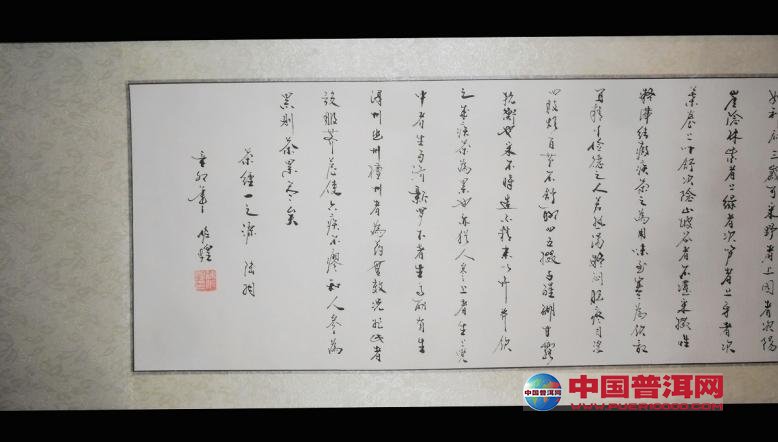 三歲可采野者上園者次陽
崖陰林紫者上綠者次笋者上牙者次
葉卷上叶舒次陰山坡谷者不堪采掇性
凝滯結瘕疾茶之為用味至寒為飲最
宜精行儉德之人若熱渴凝悶腦疼目涩
四肢煩百节不舒聊四五啜与醍醐甘露
抗衡也采不時造不精杂以卉莽飲
之成疾茶為累也亦猶人參上者生上党
中者生百济新罗下者生高丽有生
澤州幽州檀州者為药無效况非此者
設服荠苨使六疾不瘳知人參為
累則茶累尽矣
茶經一之源 陸羽
辛卯年
中国普洱网
WWW.PUERCN.COM